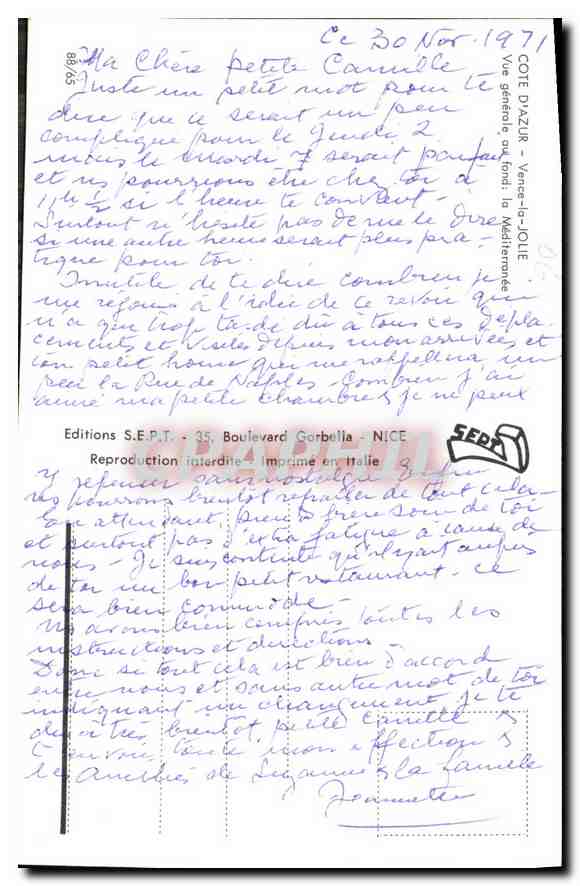 Ce 30 Nov. 1971
Ma Chère petite Camille
Juste un petit mot pour te
dire que ce serait un peu
compliqué pour le jeudi 2
mais le mardi 7 serait parfait
et ns pourrions être chez toi à
11h 1/2 si l'heure te convient -
Surtout n'hésite pas de me le dire
si une autre heure serait plus pra-
tique pour toi.
Inutile de te dire combien je
me réjouis à l'idée de te revoir
n'a que trop tardé dû à tous ces dépla-
cements et visites depuis mon arrivée et
ton petit home qui me rappellera un
peu la Rue de Naples - Combien j'ai
aimé ma petite chambre & je ne peux
y repenser sans nostalgie Enfin
ns pourrons bientôt reparler de tout cela -
En attendant, prends bien soin de toi
et surtout pas d'extra fatigue à cause de
nous - Je suis contente qu'il y ait auprès
de toi un bon petit restaurant - ce
sera bien commode -
Ns avons bien compris toutes les
instructions et directions
Donc si tout cela est bien d'accord
entre nous et sans autre mot de toi
indiquant un changement, je te
dis à très bientôt, petite Camille &
t'envoie toute mon affection &
les amitiés de Suzanne & la famille
Jeannette
COTE D'AZUR - Vence-la-JOLIE
Vue générale au fond: la Méditerranée
88/65
Editions S.E.P.T. - 35, Boulevard Gorbella - NICE
Reproduction interdite - Imprimé en Italie
SEPT